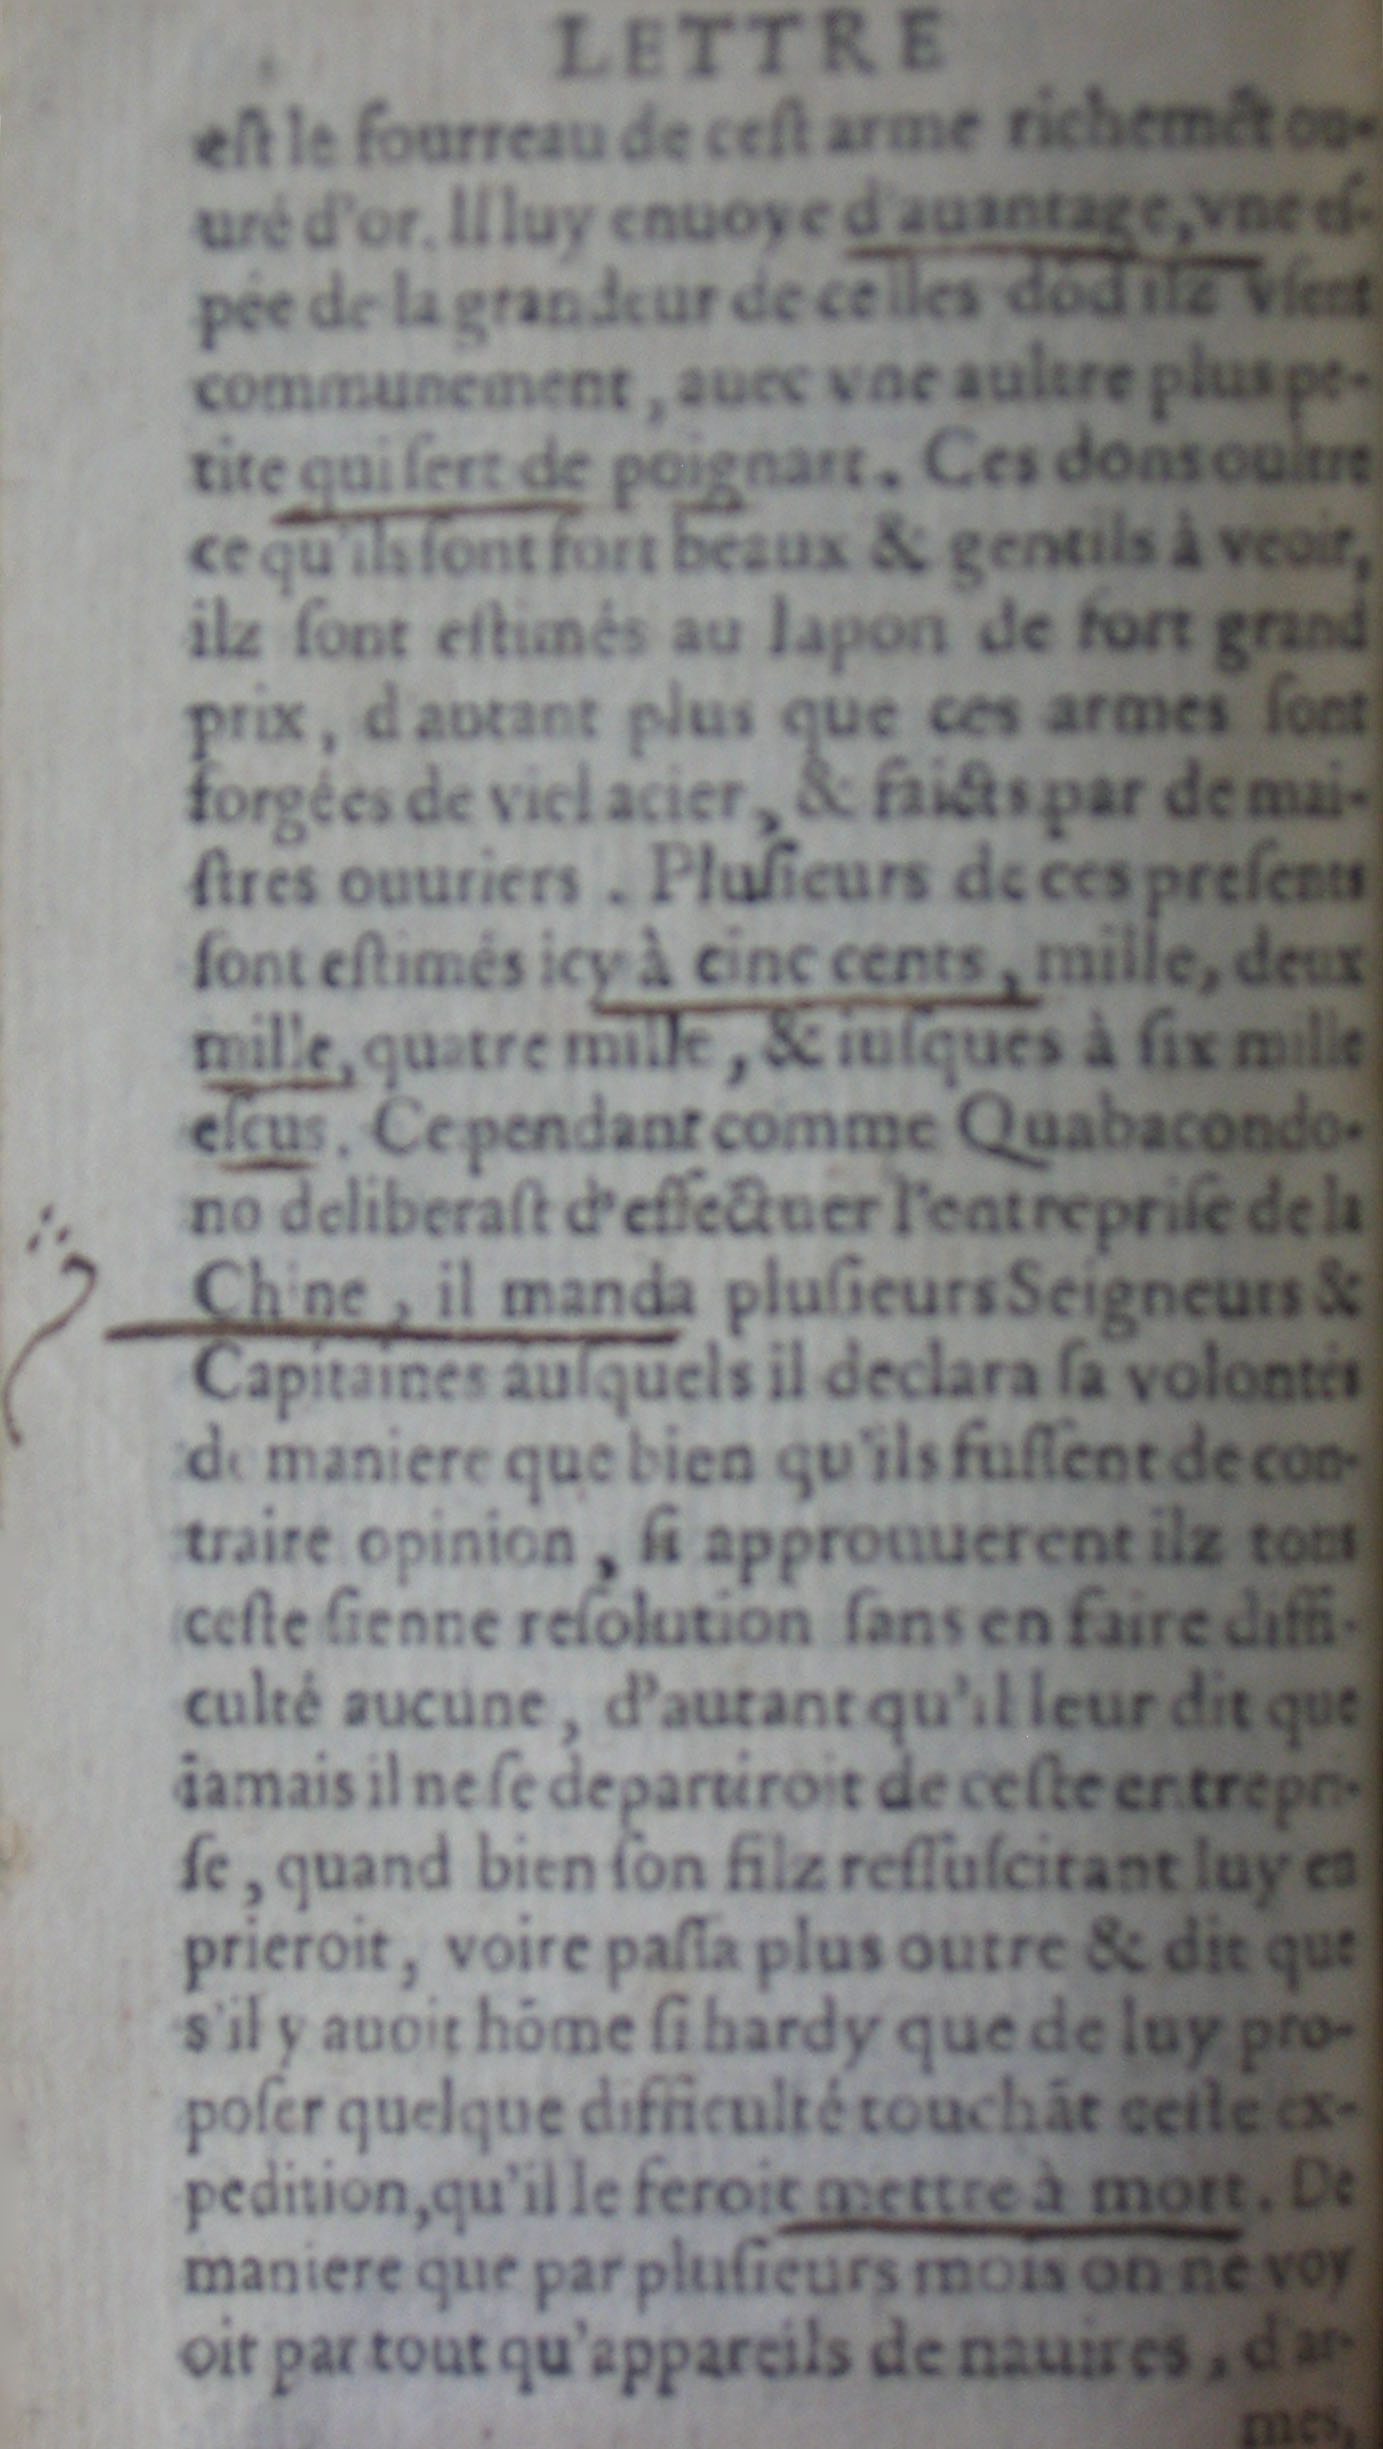 LETTRE
eſt le fourreau de ceſt arme richemēt ou-
uré d'or. Il luy enuoye d'auantage, vne eſ-
pée de la grandeur de celles dōd ilz vſent
communement, auec vne aultre plus pe-
tite qui ſert de poignart. Ces dons oultre
ce qu'ils ſont fort beaux & gentils à veoir,
ilz ſont eſtimés au Iapon de fort grand
prix, d'autant plus que ces armes ſont
forgées de viel acier, & faicts par de mai-
ſtres ouuriers. Pluſieurs de ces preſents
ſont eſtimés icy à cinc cents, mille, deux
mille, quatre mille, & iuſques à ſix mille
eſcus. Cependant comme Quabacondo-
no deliberaſt d'effectuer l'entrepriſe de la
Chine, il manda pluſieurs Seigneurs &
Capitaines auſquels il declara ſa volontés
de maniere que bien qu'ils fuſſent de con-
traire opinion, ſi approuuerent ilz tous
ceſte ſienne reſolution ſans en faire diffi-
culté aucune, d'autant qu'il leur dit que
iamais il ne ſe departiroit de ceſte entrepri-
ſe, quand bien ſon filz reſſuſcitant luy en
prieroit, voire paſſa plus outre & dit que
s'il y auoit hōme ſi hardy que de luy pro-
poſer quelque difficulté touchāt ceſte ex-
pedition, qu'il le feroit mettre à mort. De
maniere que par pluſieurs mois on ne voy
oit par tout qu'appareils de nauires, d'ar-
mes,